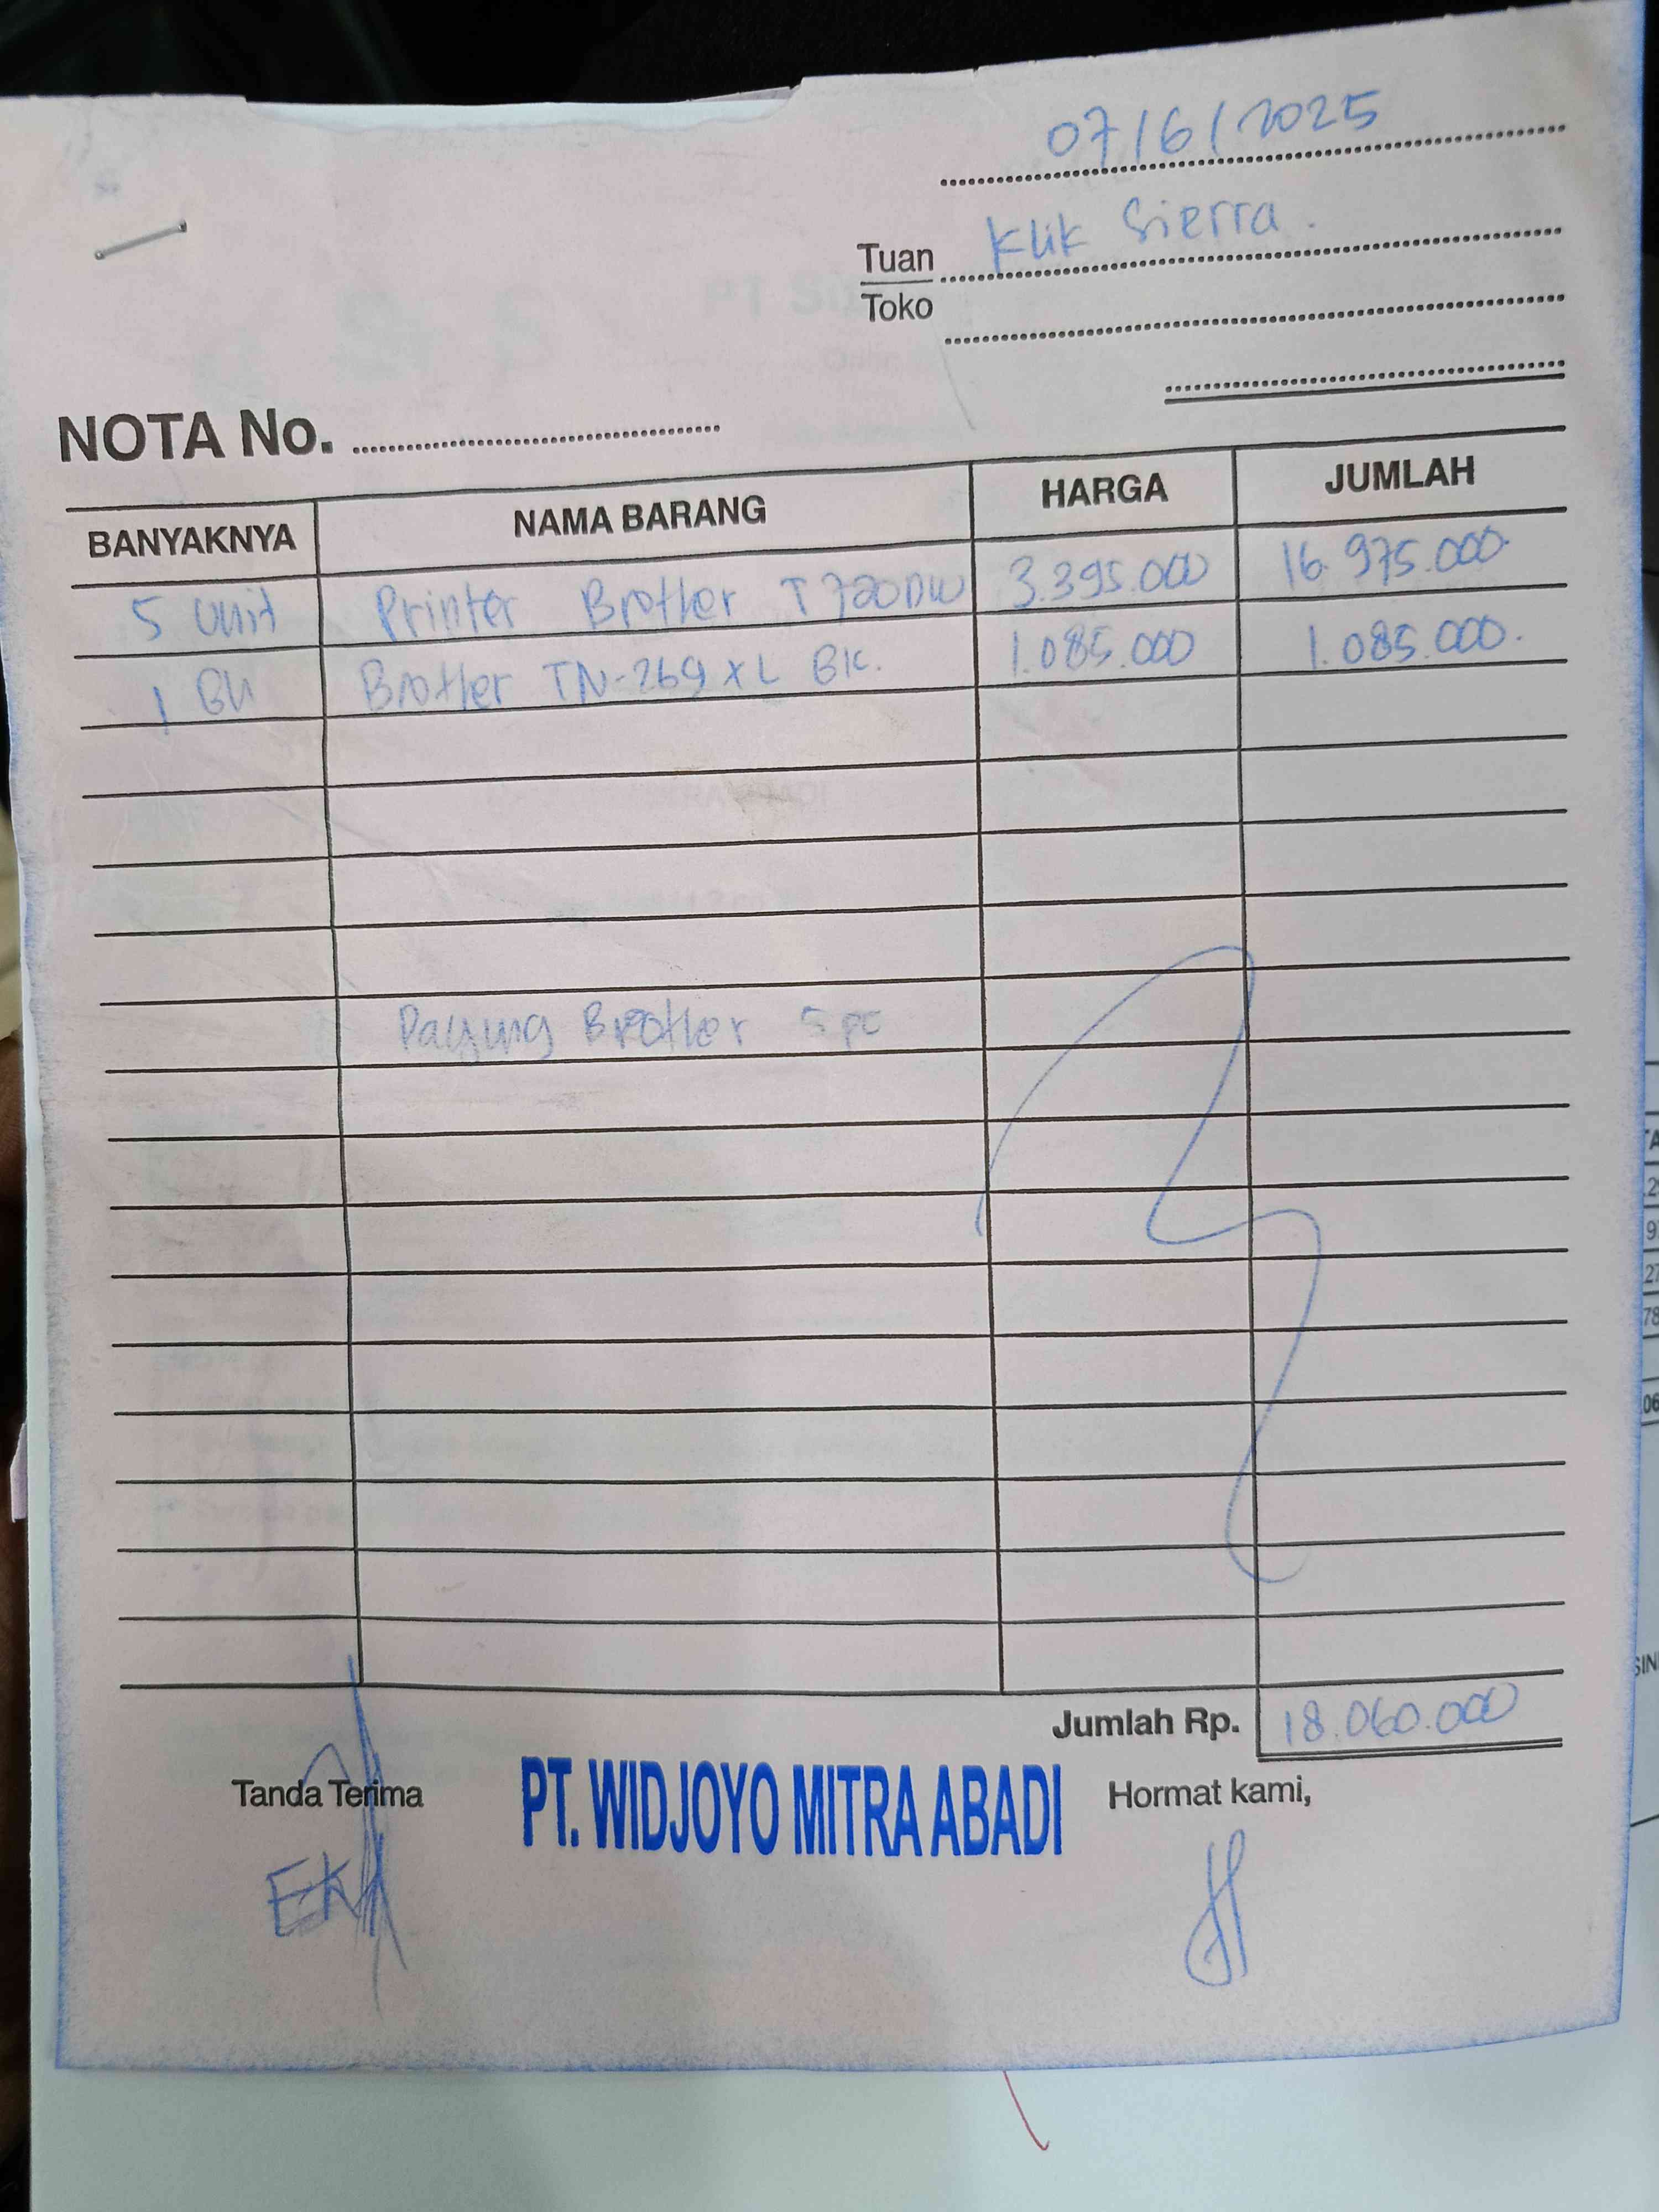 07/6/2025
Tuan Klik Sierra.
Toko
NOTA No.
BANYAKNYA NAMA BARANG HARGA JUMLAH
5 Unit Printer Brother T720DW 3.395.000 16.975.000
1 BH Brother TN-269 XL BK. 1.085.000 1.085.000.
Payung Brother 5 pc
Jumlah Rp. 18.060.000
Tanda Terima PT. WIDJOYO MITRA ABADI Hormat kami,
EKA